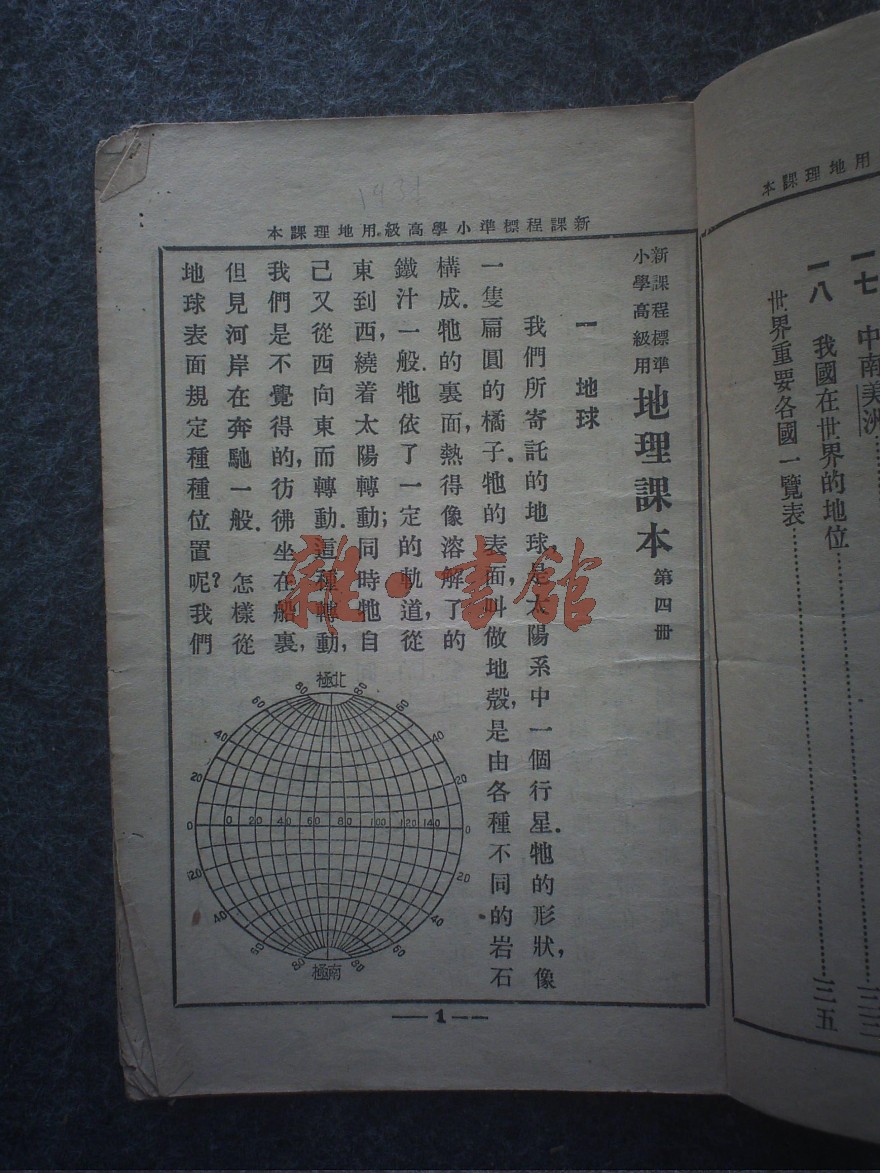 用地理課本
一七 中南美洲
一八 我國在世界的地位
世界重要各國一覽表 一二五
1937
新課程標準小學高級用地理課本
新課程標準
小學高級用
地理課本 第四冊
一 地球
我們所寄託的地球,是太陽系中一個行星.牠的形狀,像
一隻扁圓的橘子.牠的表面,叫做地殼,是由各種不同的岩石
構成.牠的裏面,熱得像溶解了的
鐵汁一般.牠依了一定的軌道,從
東到西,繞着太陽轉動;同時牠自
己又從西向東而轉動.這種轉動,
我們是不覺得的,彷彿坐在船裏,
但見河岸在奔馳一般. 怎樣從
地球表面規定種種位置呢?我們
北極
80 80
60 60
40 40
20 20
0 0 20 40 60 80 100 120 140 0
20 20
40 40
60
80 80
南極
1
雜·書館